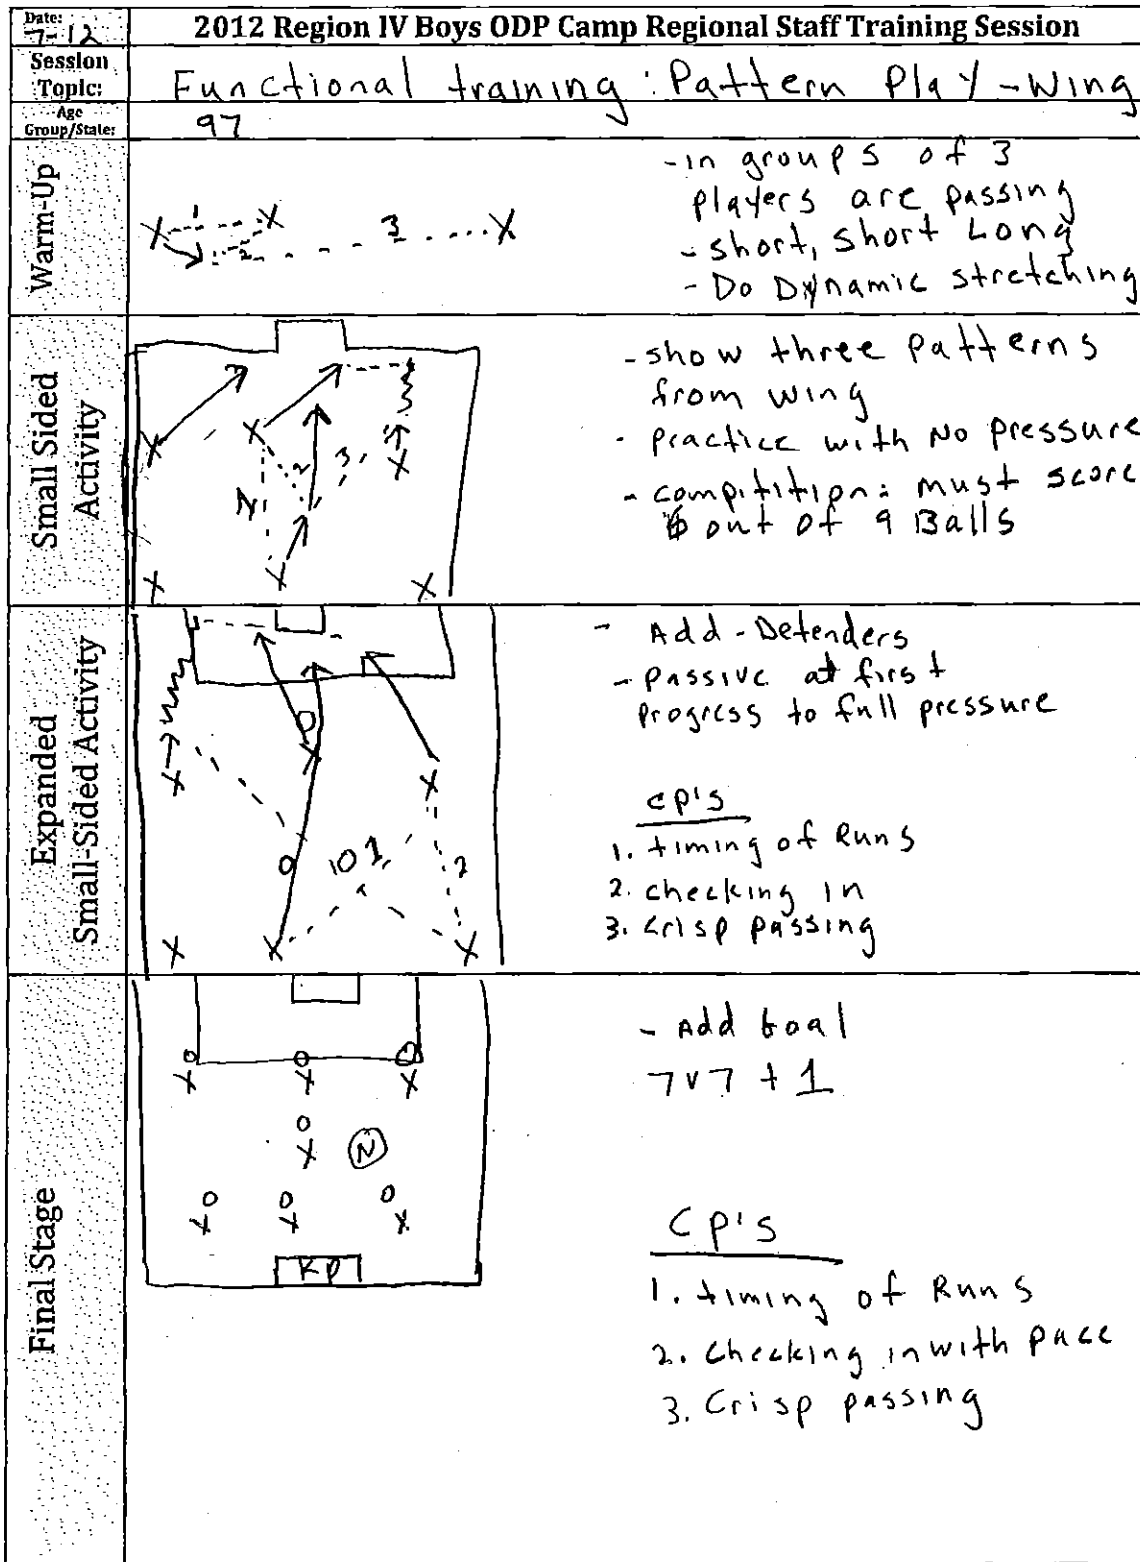 Date:
7-12
2012 Region IV Boys ODP Camp Regional Staff Training Session
Session
Topic:
Functional training : Pattern Play - Wing
Age
Group/State:
97
Warm-Up
X 1 X 2 3 X
- in groups of 3
players are passing
- short, short Long
- Do Dynamic stretching
Small Sided
Activity
X X X
2 3
X X X
- show three patterns
from wing
- practice with No pressure
- compitition: must score
6 out of 9 Balls
Expanded
Small-Sided Activity
O
X X X
O O 1 2
X X X
- Add - Defenders
- Passive at first
Progress to full pressure
CP's
1. timing of Runs
2. checking in
3. crisp passing
Final Stage
O O O
X X X
O
X N
O O O
X X X
- Add Goal
7v7 + 1
CP's
1. timing of Runs
2. Checking in with pace
3. Crisp passing